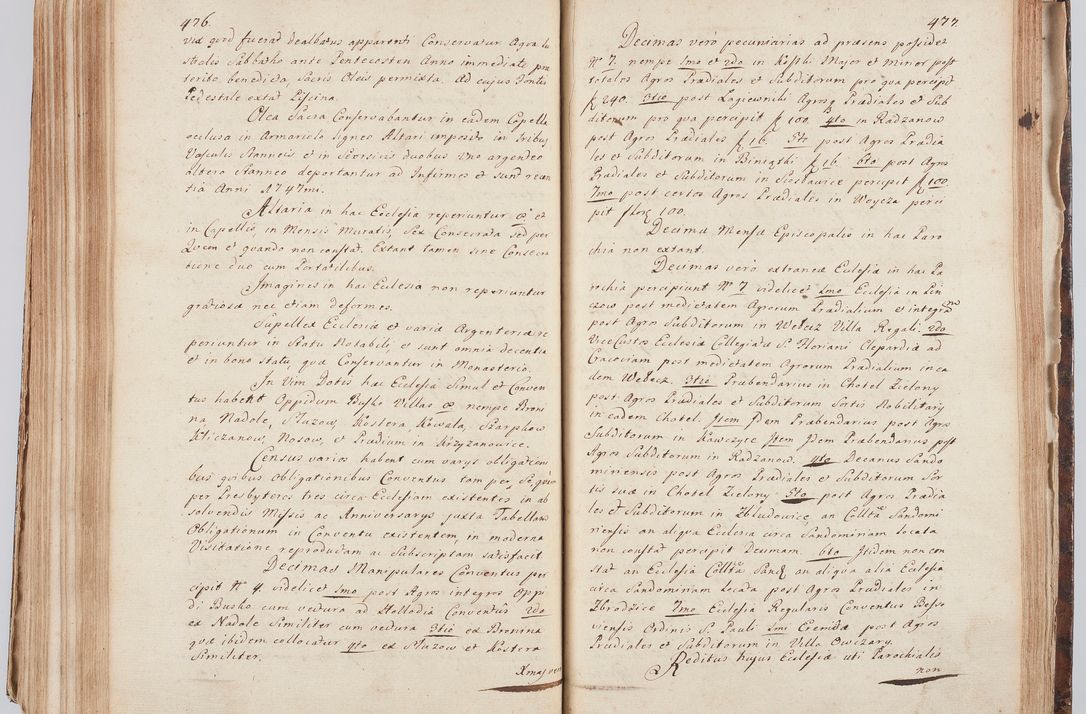 476.
via quod fuerat dealbatus apparenti Conservatur Aqua lu
stralis Sabbatho ante Pentecosten Anno immediate præ
terito, benedicta, Sacris Oleis permixta. Ad cujus Fontis
Pedestale extat Piscina.
Olea Sacra Conservabantur in eadem Capella
occlusa in Armariolo ligneo Altari imposito in tribus
Vasculis stanneis et in scorsivis duobus uno argenteo
altero stanneo deportantur ad Infirmos et sunt recen
tia Anni 1747mi.
Altaria in hac Ecclesia reperiuntur 8 et
in Capellis, in Mensis Muratis, sex Consecrata sed per
Quem et quando non constat. Extant tamen sine Consecra
tione duo cum Portatilibus.
Imagines in hac Ecclesia non reperiuntur
gratiosæ nec etiam deformes.
Supellex Ecclesiæ et varia Argenteria re
periuntur in Statu Notabili, et sunt omnia decentia
et in bono statu, quæ Conservantur in Monasterio.
In Vim Dotis hac Ecclesia Simul et Conven
tus habent Oppidum Busko Villas 8 nempe Broni
na Nadole, Słuzow, Kostera, Kowala, Szarpkow
Kliczanow, Nosow, et Prædium in Krzyzanowice.
Census varios habent cum varys obligationi
bus quibus Obligationibus Conventus tam per se, quam
per Presbyteros tres circa Ecclesiam existentes in ab
solvendis Missis ac Anniversarys juxta Tabellam
Obligationum in Conventu existentem, in moderna
Visitatione reproductam ac Subscriptam satisfacit
Decimas Manipulares Conventus per
cipit No 4. videlicet 1mo post Agros integros Oppi
di Busko cum vectura ad Stollodia Conventus 2do
ex Nadole Similiter cum vectura 3tio ex Bronina
quæ ibidem collocatur 4to ex Słuzow et Kostera
Similiter.
477.
Decimas vero pecuniarias ad præsens possidet
No 7. nempe 1mo et 2do in Kostki Major et Minor post
totales Agros Prædiales et Subditorum pro qua percipit
f 240. 3tio post Łagiewniki Agros Prædiales et Sub
ditorum pro qua percipit f 100. 4to in Radzanow
post Agros Prædiales f 16. 5to post Agros Prædia
les et Subditorum in Biniątki f 16. 6to post Agros
Prædiales et Subditorum in Siesławice percipit f 100
7mo post certos Agros Prædiales in Woycza perci
pit flor 100.
Decima Mensæ Episcopalis in hac Paro
chia non extant.
Decimas vero extraneæ Ecclesiæ in hac Pa
rochia percipiunt No 7. videlicet 1mo Ecclesia in Pin
czow post medietatem Agrorum Prædialium et integra
post Agros Subditorum in Welecz Villa Regali. 2do
Vice Custos Ecclesiæ Collegiatæ S. Floriani Clepardiæ ad
Cracoviam post medietatem Agrorum Prædialium in ea
dem Welecz. 3tio Præbendarius in Chotel Zielony
post Agros Prædiales et Subditorum Sortis Nobilitary
in eadem Chotel. Item Idem Præbendarius post Agros
Subditorum in Kawczyce Item Idem Præbendarius post
Agros Subditorum in Radzanow. 4to Decanus Sando
miriensis post Agros Prædiales et Subditorum Sor
tis suæ in Chotel Zielony 5to post Agros Prædia
les et Subditorum in Zbludowice, an Collta Sandomi
riensis an aliqua Ecclesia circa Sandomiriam locata
non constat percipit Decimam. 6to Itidem non con
stat an Ecclesia Collta Sand an aliqua alia Ecclesia
circa Sandomiriam Locata post Agros Prædiales in
Zbrodzice 7mo Ecclesia Regularis Conventus Besso
viensis Ordinis S. Pauli 1mi Eremitæ post Agros
Prædiales et Subditorum in Villa Owczary.
Reditus hujus Ecclesiæ uti Parochialis
non